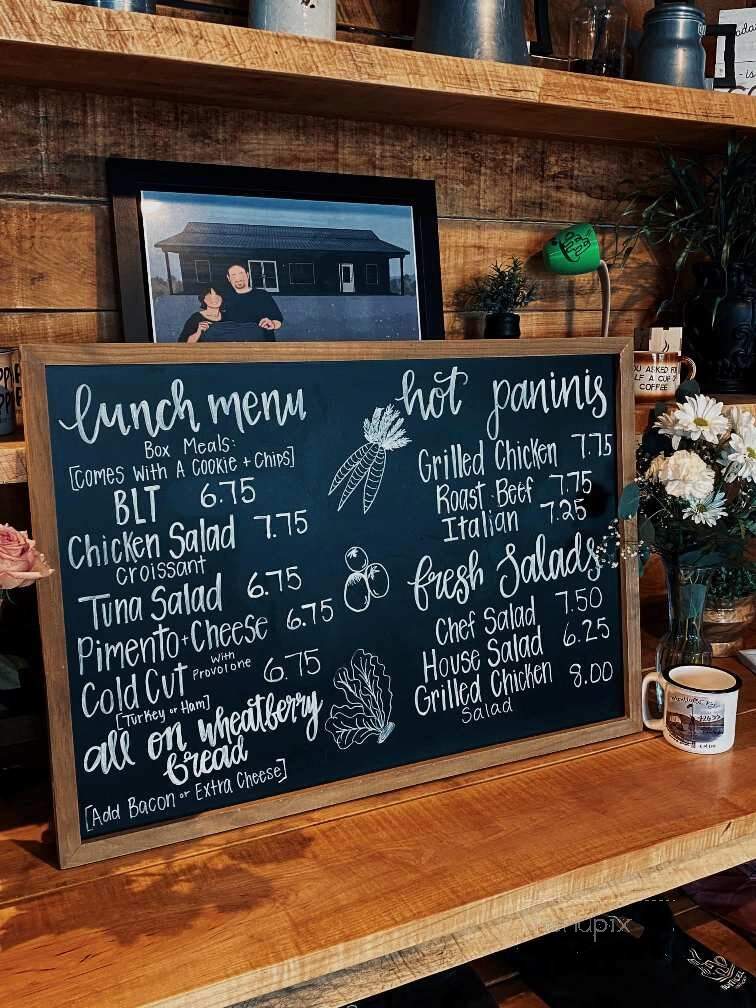 lunch menu
Box Meals:
[Comes With A Cookie + Chips]
BLT 6.75
Chicken Salad 7.75
Croissant
Tuna Salad 6.75
Pimento + Cheese 6.75
Cold Cut with Provolone 6.75
[Turkey or Ham]
all on wheatberry
bread
[Add Bacon or Extra Cheese]
hot paninis
Grilled Chicken 7.75
Roast Beef 7.75
Italian 7.25
fresh Salads
Chef Salad 7.50
House Salad 6.25
Grilled Chicken 8.00
Salad
YOU ASKED FOR
HALF A CUP OF
COFFEE